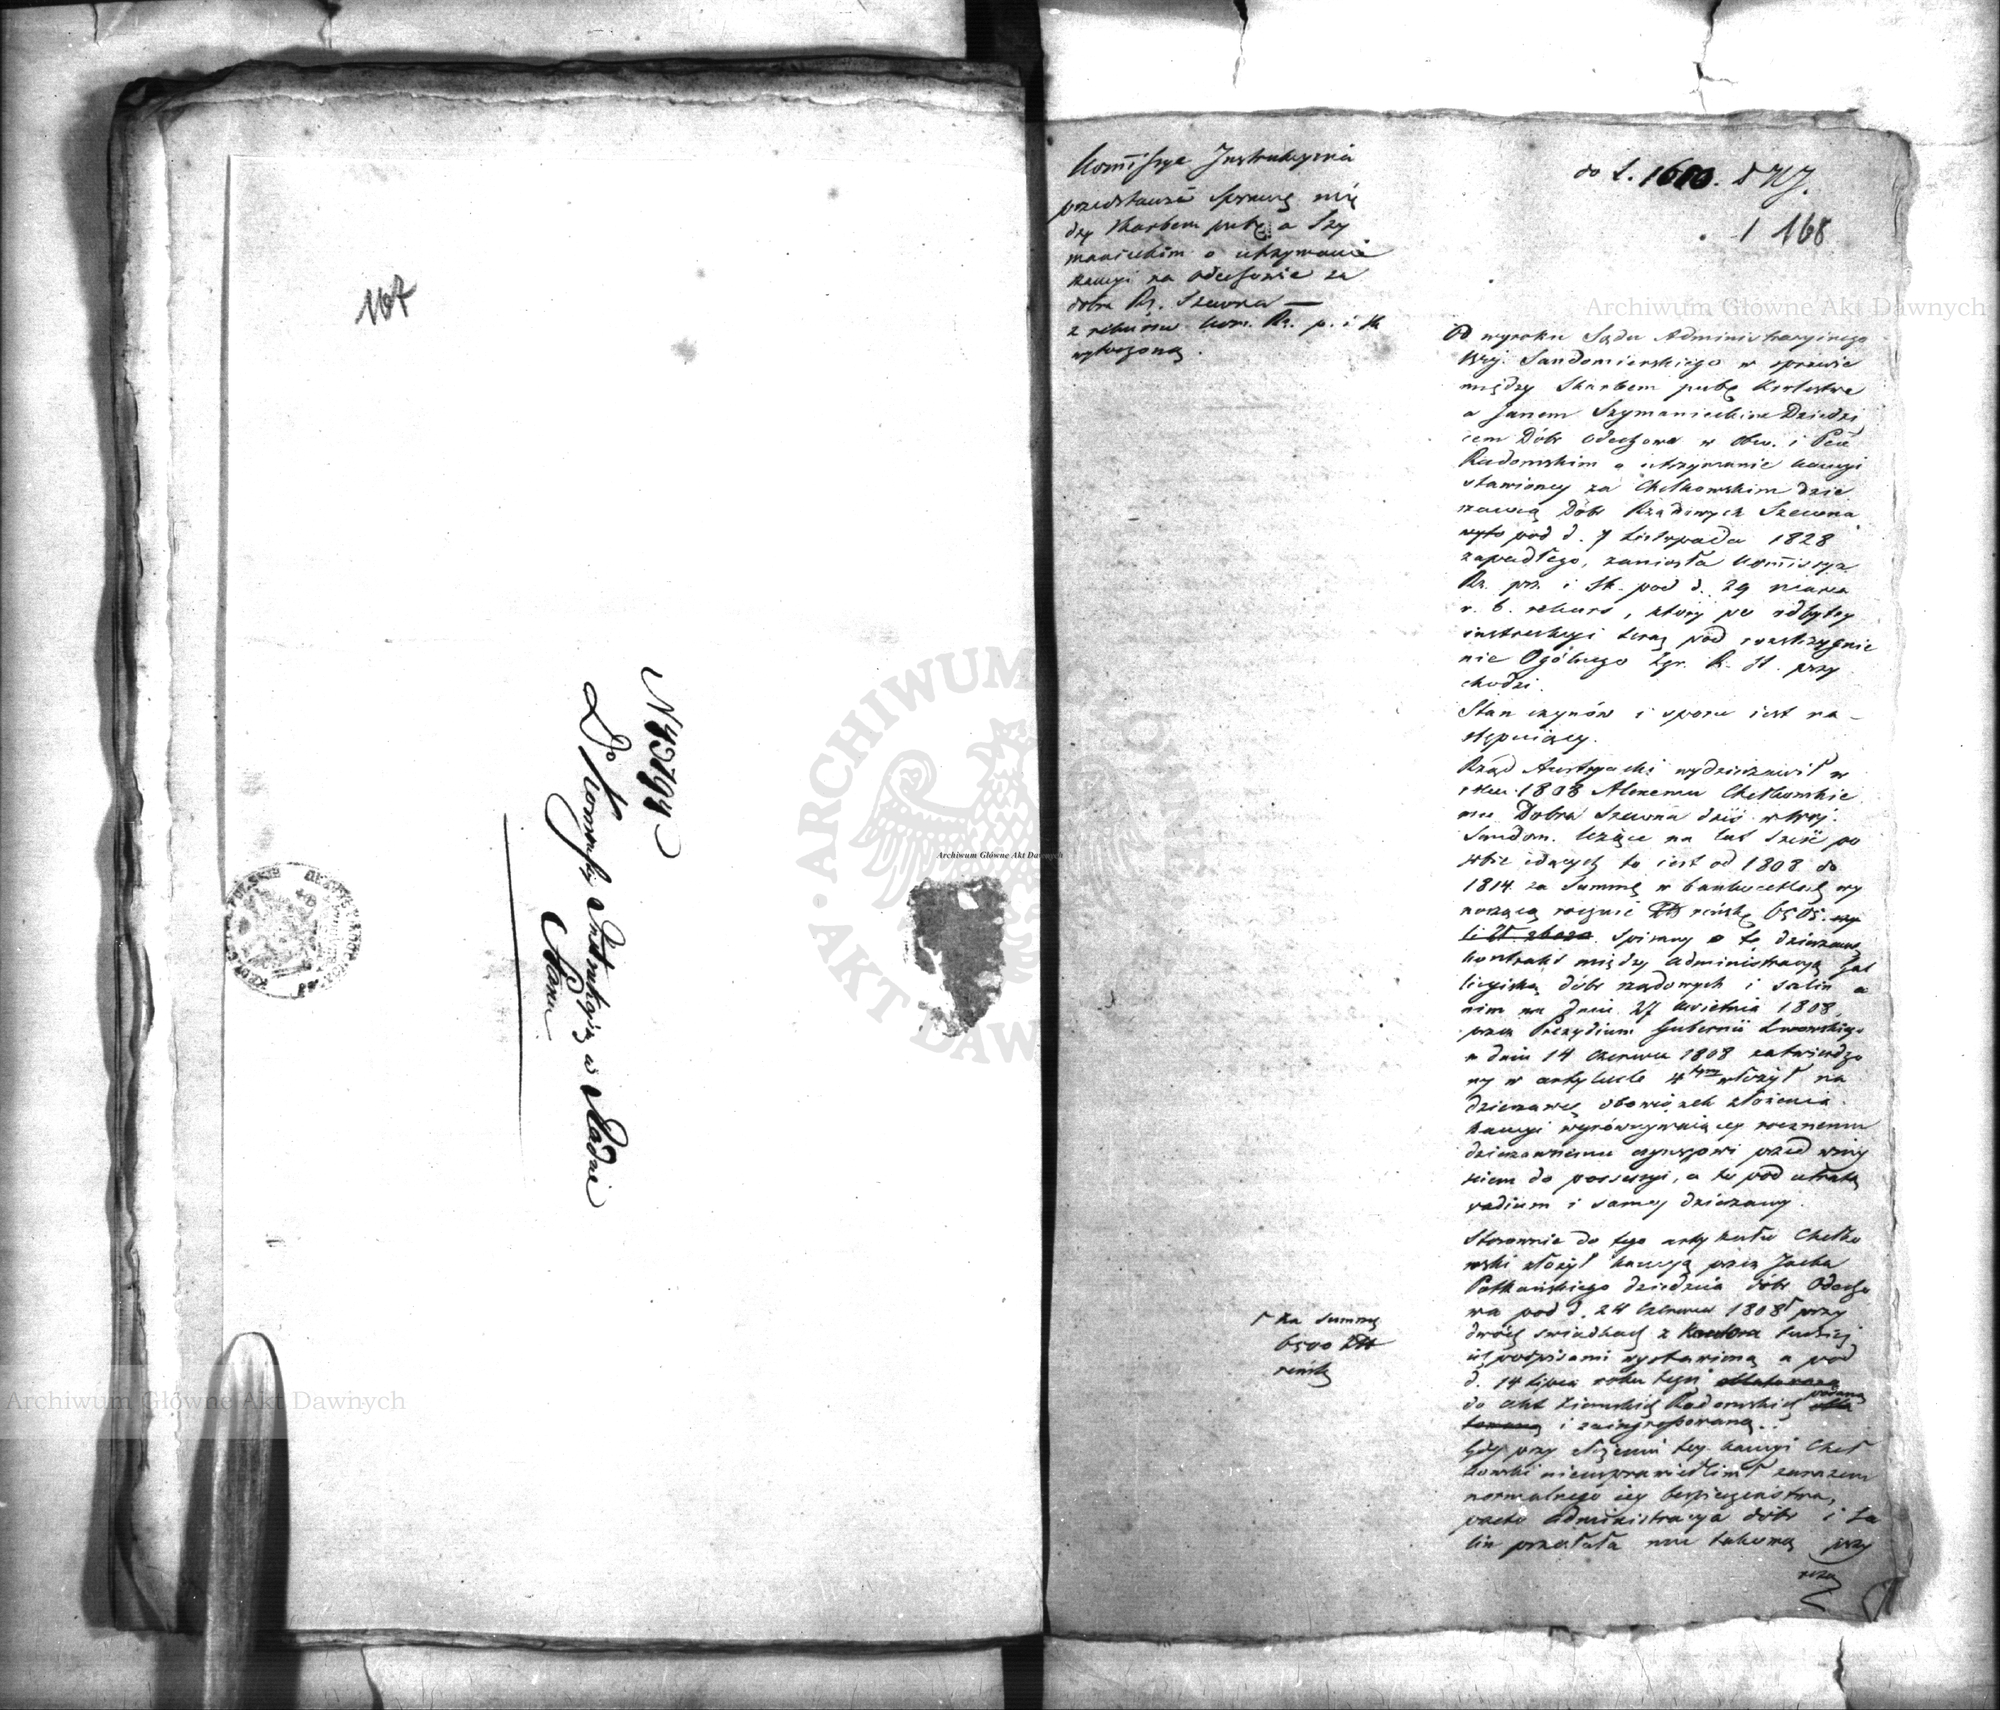 167
N 43794
Do Kommissyi Instrukcyiney w Radzie
Stanu
Kommissya Instrukcyina
przedstawia sprawę mię
dzy Skarbem publ. a Szy
manieckim o utrzymanie
kaucyi na Odechowie za
dobra Rz. Szewna —
z rekursu Kom. Rz. p. i Sk
wytoczoną.
do L. 1680.
168
Od wyroku Sądu Administracyinego
Wwj. Sandomierskiego w sprawie
między Skarbem publ. Królestwa
a Janem Szymanieckim Dziedzi
cem Dóbr Odechowa w Obw. i Pcie
Radomskim o utrzymanie kaucyi
stawioney za Chełkowskim dzier
zawcą Dóbr Rządowych Szewna
pod d. 7 Listopada 1828
zapadłego, zaniosła Kommissya
Rz. prz. i Sk. pod d. 29 Marca
r. b. rekurs, który po odbytey
instrukcyi teraz pod rozstrzygnie
nie Ogólnego Zgr. R. St. przy
chodzi.
Stan czynów i sporu iest na-
stępuiący.
Rząd Austryacki wydzierzawił w
roku 1808 Chełkowskie
mu Dobra Szewna dziś w Wwj.
Sandom. leżące na lat sześć po
sobie idących to iest od 1808 do
1814 za summę w bankocetlach wy
noszącą rocznie reńsk. 6505.
spisany o tę dzierzawę
kontrakt między Administracyą Gal
licyiską dóbr rządowych i salin a
nim na dniu 27 Kwietnia 1808,
przez Prezydium Gubernii Lwowskiego
w dniu 14 Czerwca 1808 zatwierdzo
ny w artykule 4tym włożył na
dzierzawcę obowiązek złożenia
kaucyi wyrównywaiącey rocznemu
dzierzawnemu czynszowi przed weiy
sciem do possessyi, a to pod utratą
vadium i samey dzierzawy.
Stosownie do tego artykułu Chełko
wski złożył kaucyą przez Jacka
Potkańskiego dziedzica dóbr Odecho
wa pod d. 24 Czerwca 1808 przy
dwóch swiadkach z tudzież
ich podpisami wystawioną a pod
d. 14 Lipca roku tegoż
do akt Ziemskich Radomskich podaną
i zaingrossowaną.
za summę
6500
reńsk.
Gdy przy złożeniu tey kaucyi Cheł
kowski nieusprawiedliwił zarazem
normalnego iey bezpieczeństwa,
przeto Administracya dóbr i Sa
lin przesłała mu takową przy